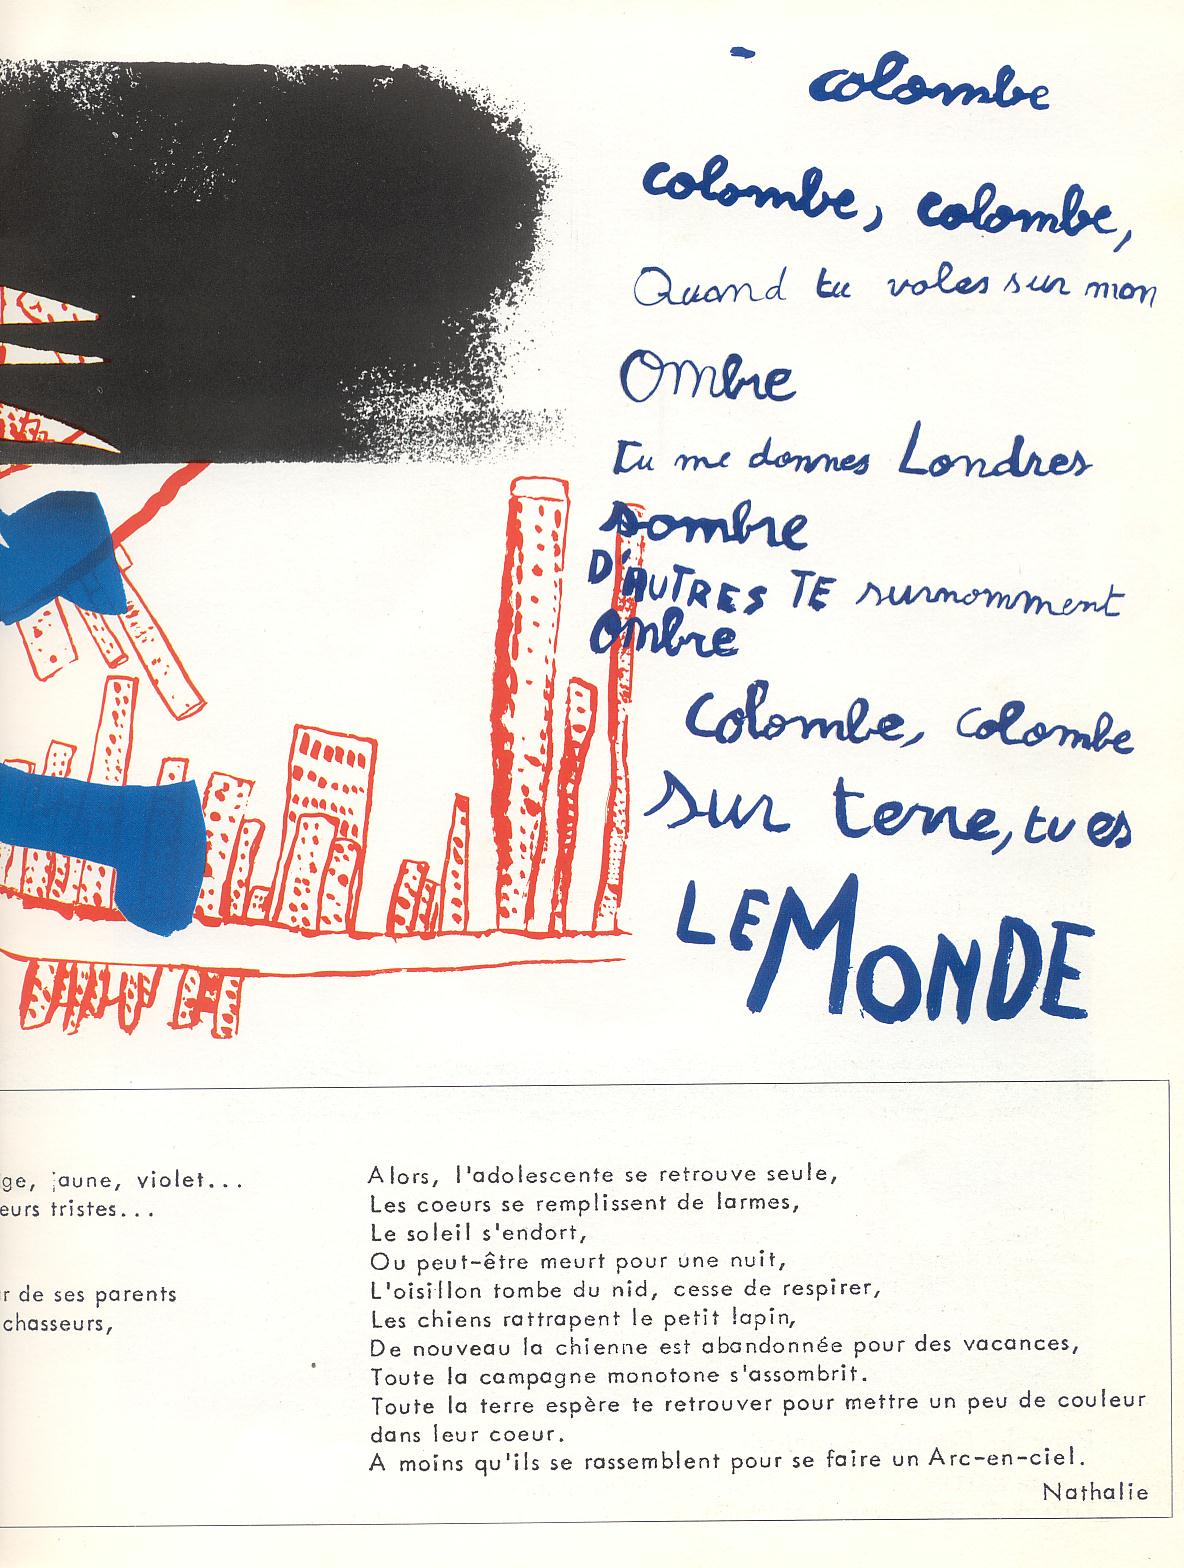 colombe
colombe, colombe,
Quand tu voles sur mon
Ombre
Tu me donnes Londres
sombre
D'AUTRES TE surnomment
Ombre
Colombe, colombe
sur terre, tu es
LE MONDE
ge, jaune, violet...
eurs tristes...
r de ses parents
chasseurs,
Alors, l'adolescente se retrouve seule,
Les coeurs se remplissent de larmes,
Le soleil s'endort,
Ou peut-être meurt pour une nuit,
L'oisillon tombe du nid, cesse de respirer,
Les chiens rattrapent le petit lapin,
De nouveau la chienne est abandonnée pour des vacances,
Toute la campagne monotone s'assombrit.
Toute la terre espère te retrouver pour mettre un peu de couleur
dans leur coeur.
A moins qu'ils se rassemblent pour se faire un Arc-en-ciel.
Nathalie